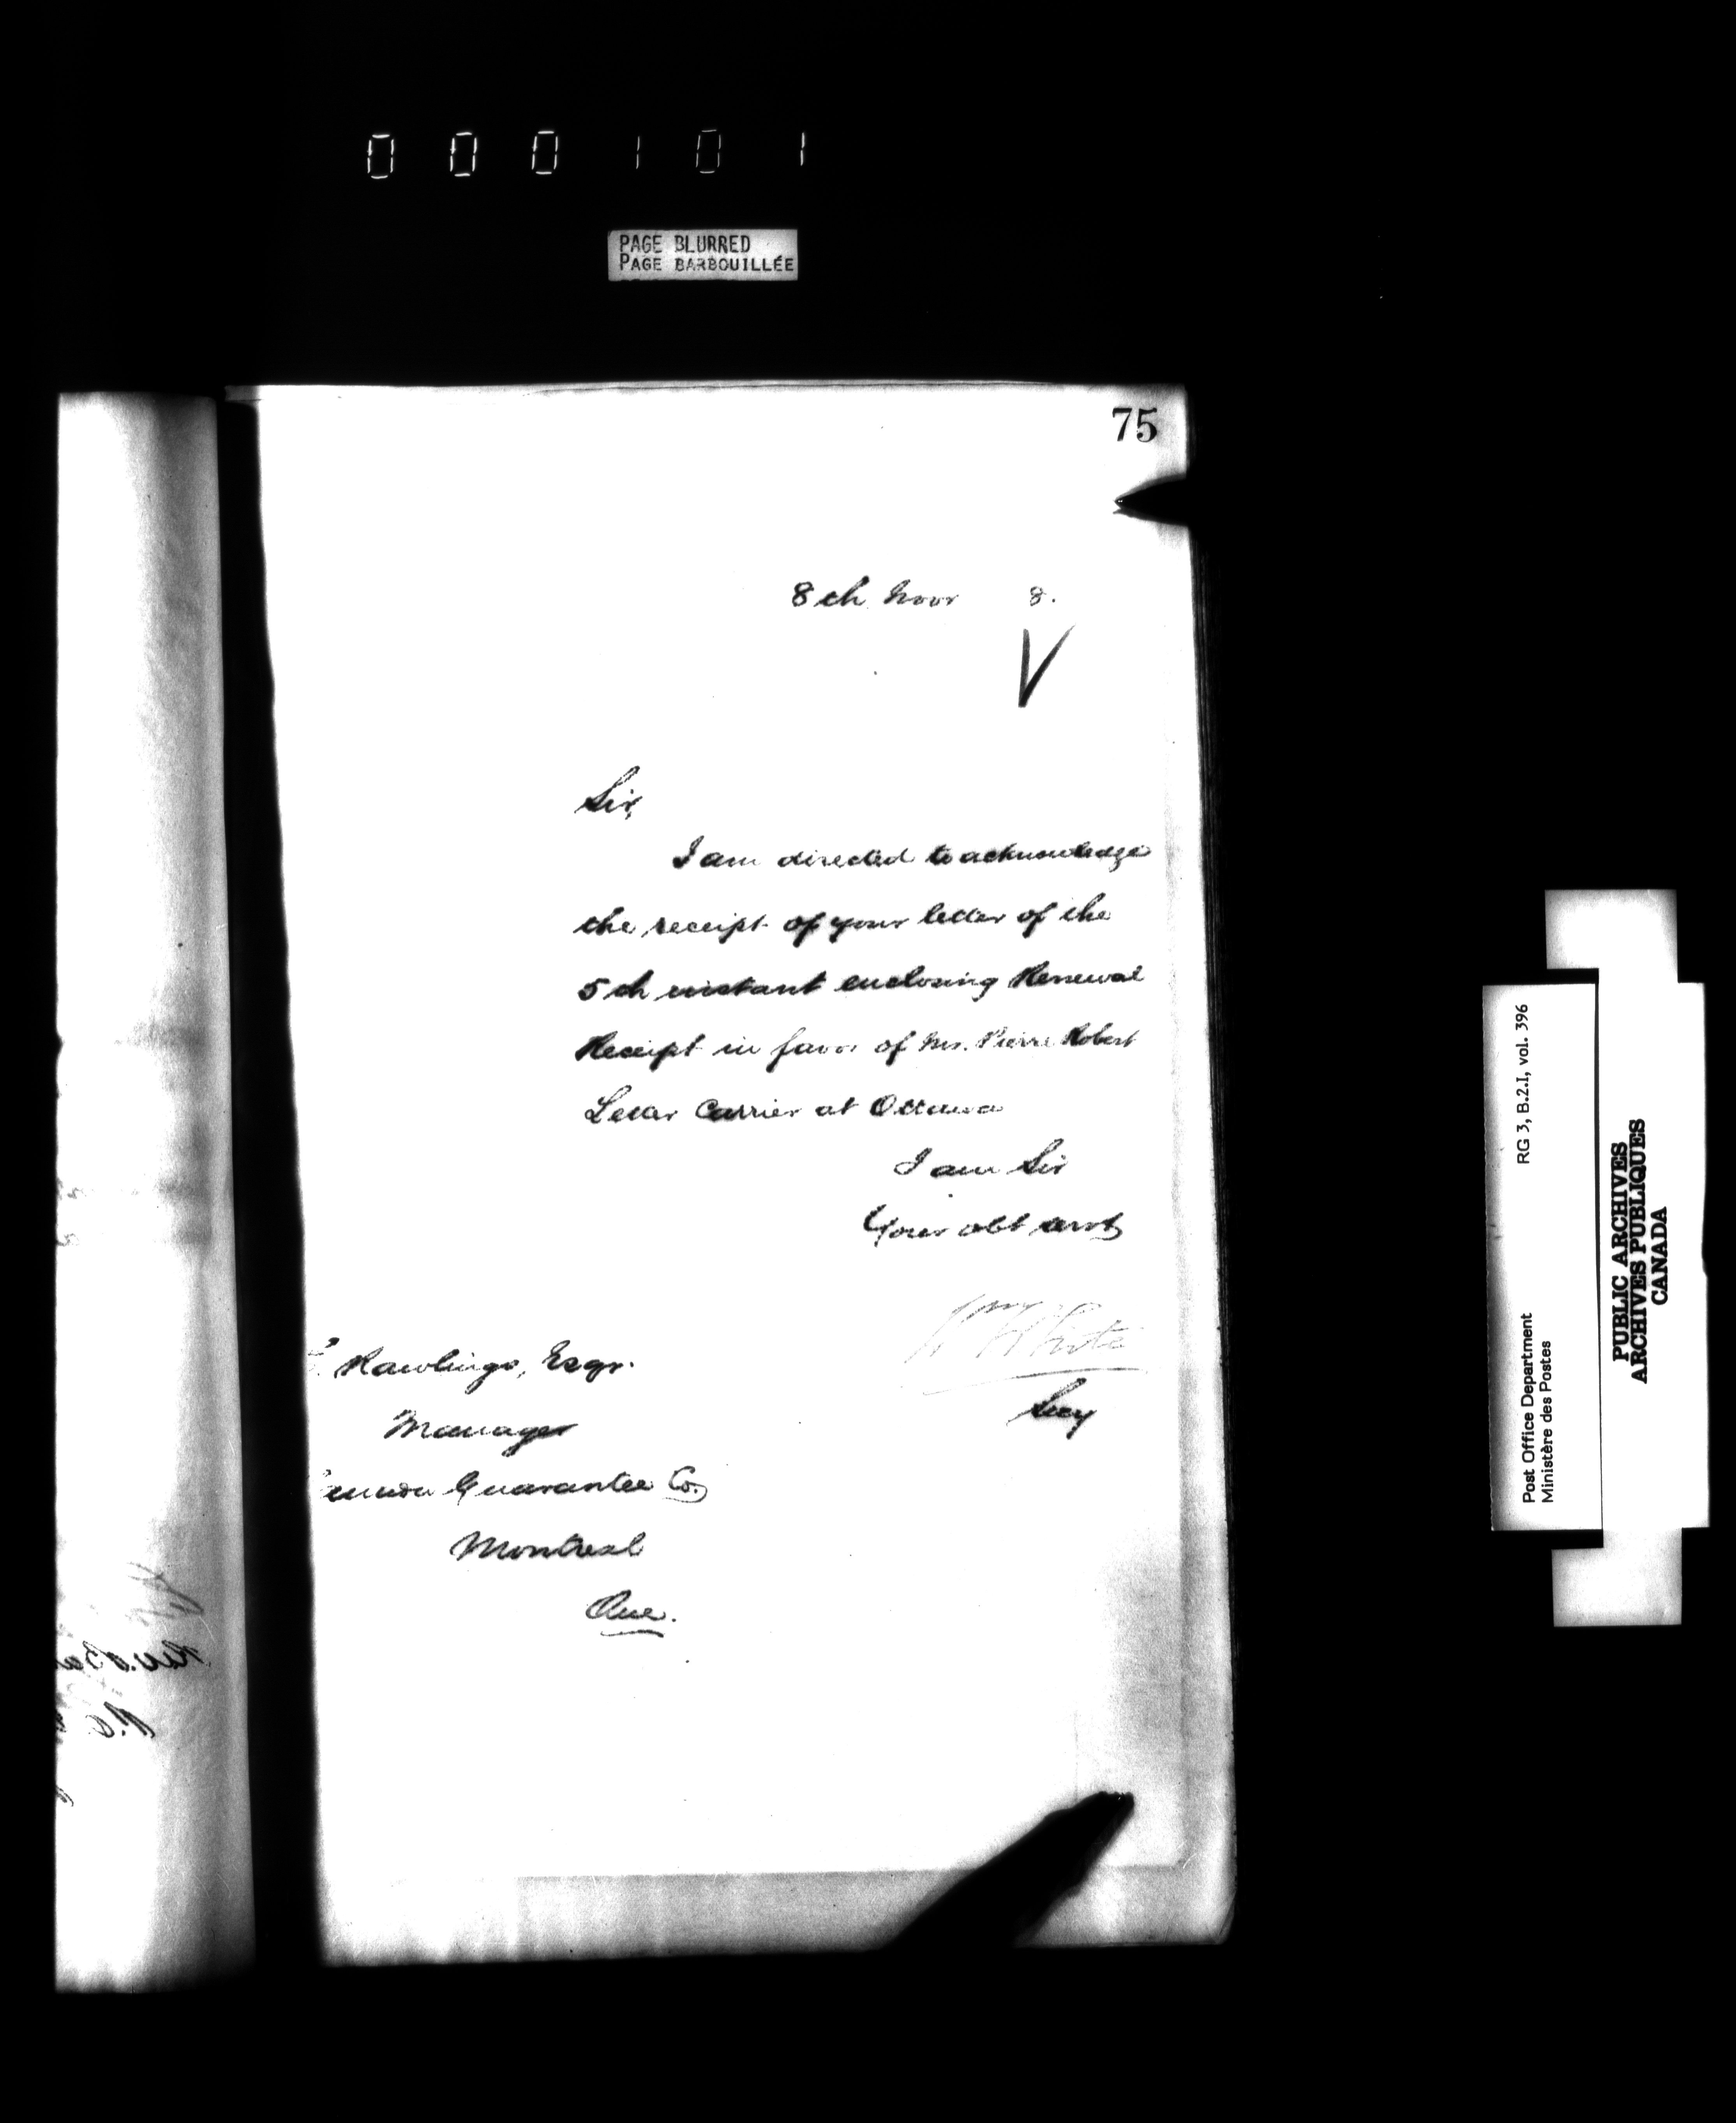 000101
PAGE BLURRED
PAGE BARBOUILLÉE
75
8th Novr 8.
Sir,
I am directed to acknowledge
the receipt of your letter of the
5th instant enclosing Renewal
Receipt in favor of Mr. Pierre Robert
Letter Carrier at Ottawa
I am Sir
Your obt servt
Wm White
Secy
Rawlings, Esqr.
Manager
Guarantee Co.
Montreal
Que.
RG 3, B.2.I, vol. 396
Post Office Department
Ministère des Postes
PUBLIC ARCHIVES
ARCHIVES PUBLIQUES
CANADA